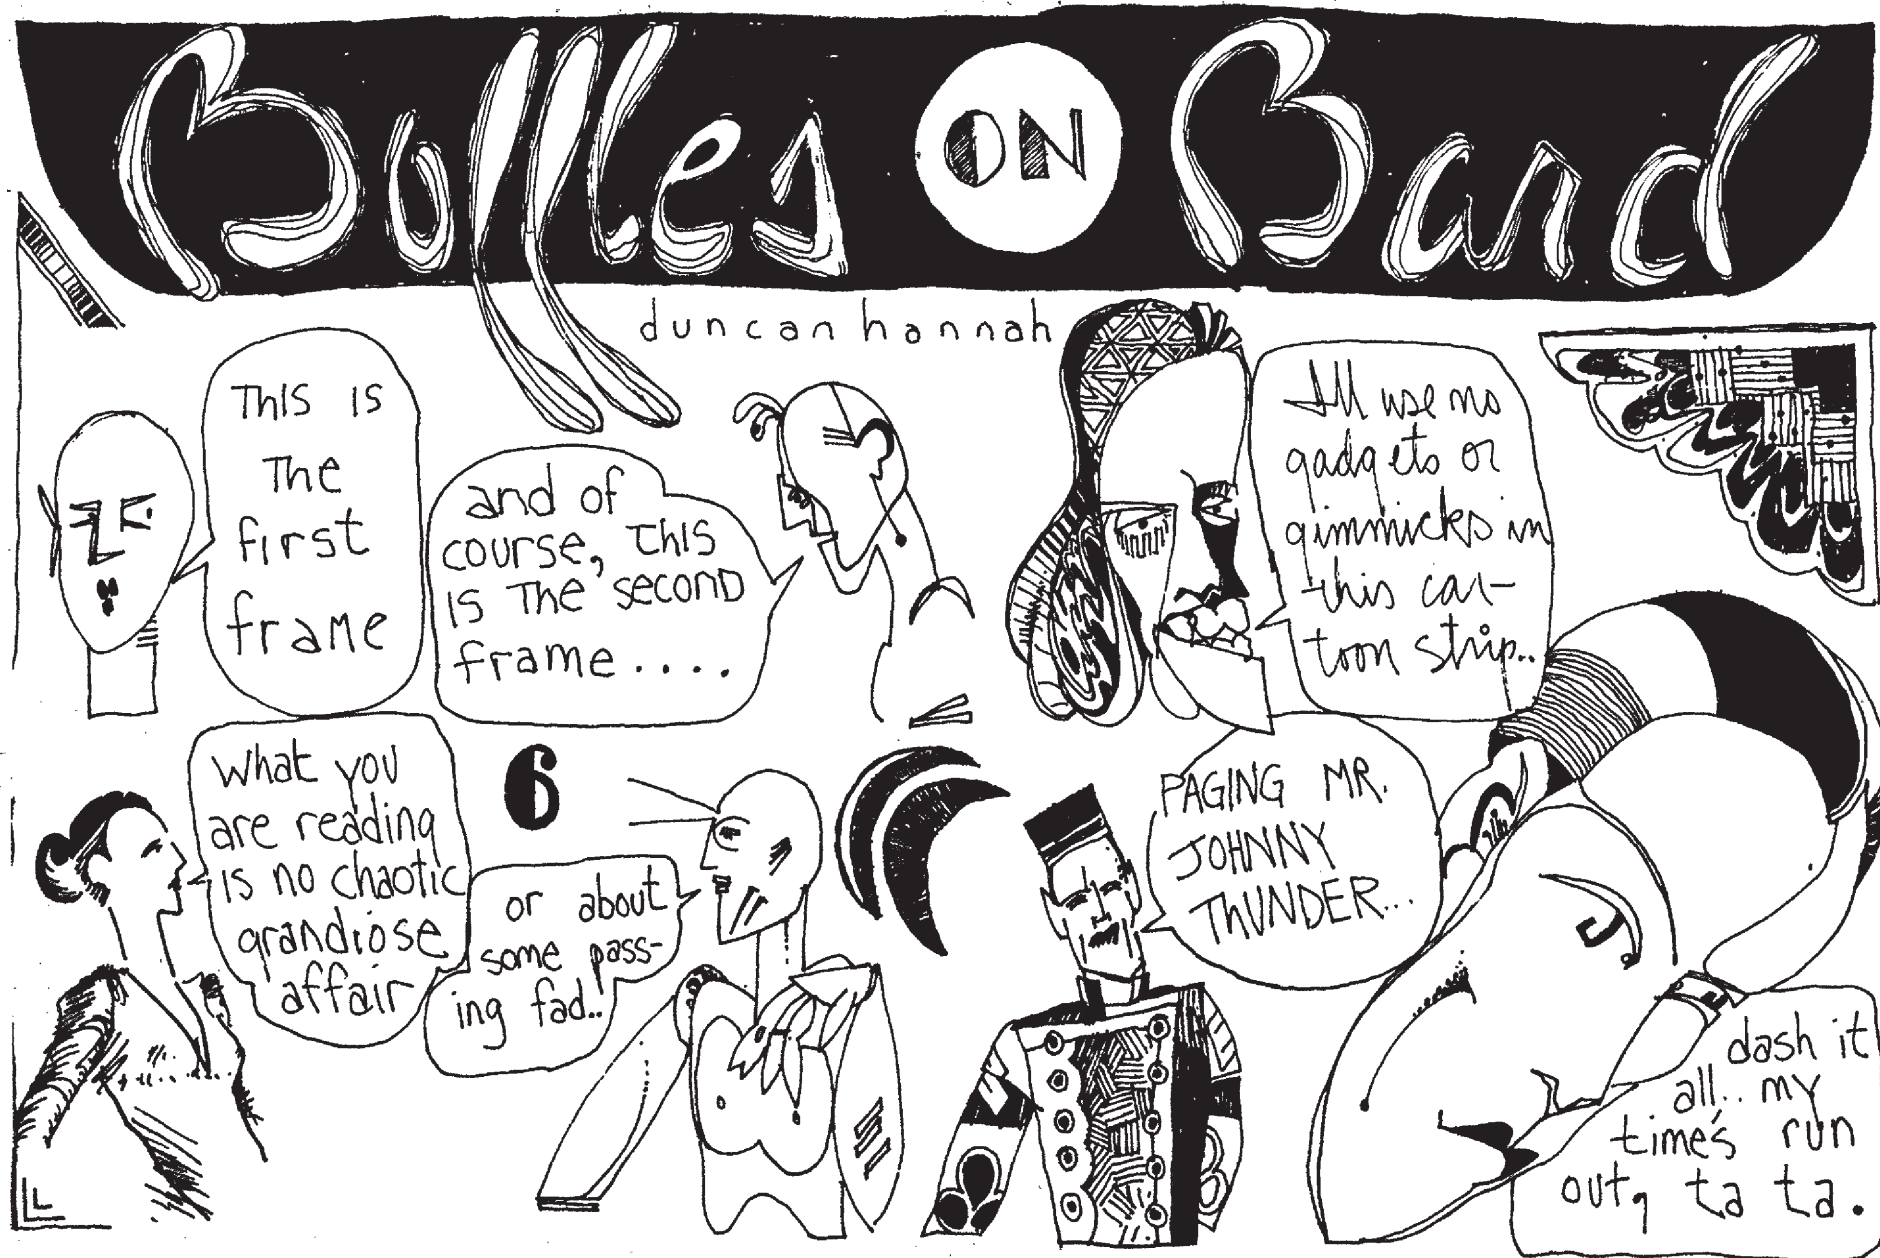 Bolles ON Bard
duncan hannah
THIS IS
The
first
frame
and of
course, this
is the second
frame....
I'll use no
gadgets or
gimmicks in
this car-
toon strip..
What you
are reading
is no chaotic
grandiose
affair
6
or about
some pass-
ing fad..
PAGING MR.
JOHNNY
THUNDER...
dash it
all.. my
time's run
out, ta ta.